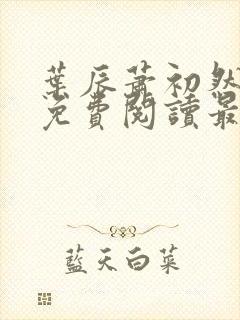 葉辰蕭初然
免費閱讀最
藍天白菜